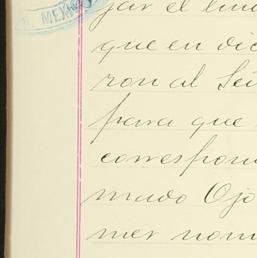 MEXI
jar el lin
que en dic
ron al Sei
para que
correspon
mado Ojo
mer nom